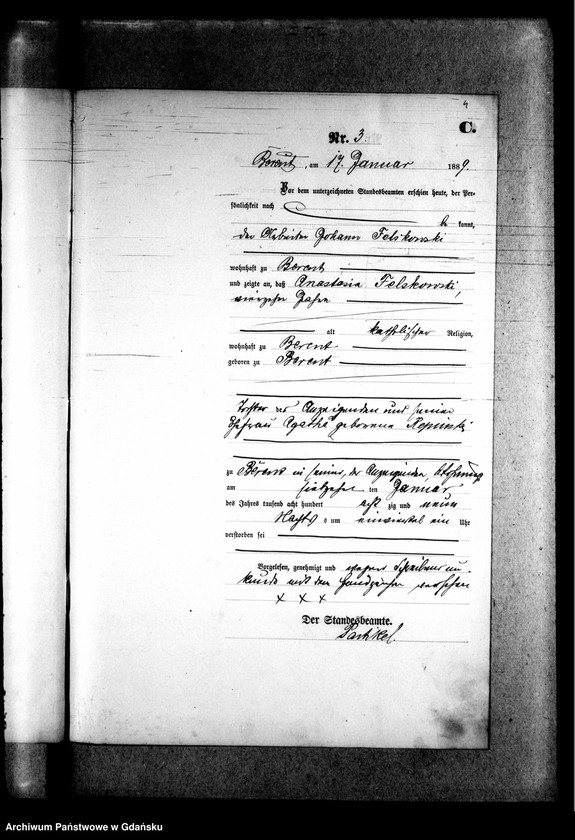 4
C.
Nr. 3.
Berent, am 17. Januar 1889.
Vor dem unterzeichneten Standesbeamten erschien heute, der Per-
sönlichkeit nach
be kannt,
der Arbeiter Johann Felskowski
wohnhaft zu Berent
und zeigte an, daß Anastasia Felskowski,
vierzehn Jahre
alt katholischer Religion,
wohnhaft zu Berent
geboren zu Berent
Tochter des Anzeigenden und seiner
Ehefrau Agatha geborene
zu Berent in seiner, des Anzeigenden, Wohnung
am siebzehn ten Januar
des Jahres tausend acht hundert acht zig und neun
Nachts um einviertel ein Uhr
verstorben sei
Vorgelesen, genehmigt und wegen Schreibensun-
kunde mit dem Handzeichen versehen
x x x
Der Standesbeamte.
Partikel.
Archiwum Państwowe w Gdańsku